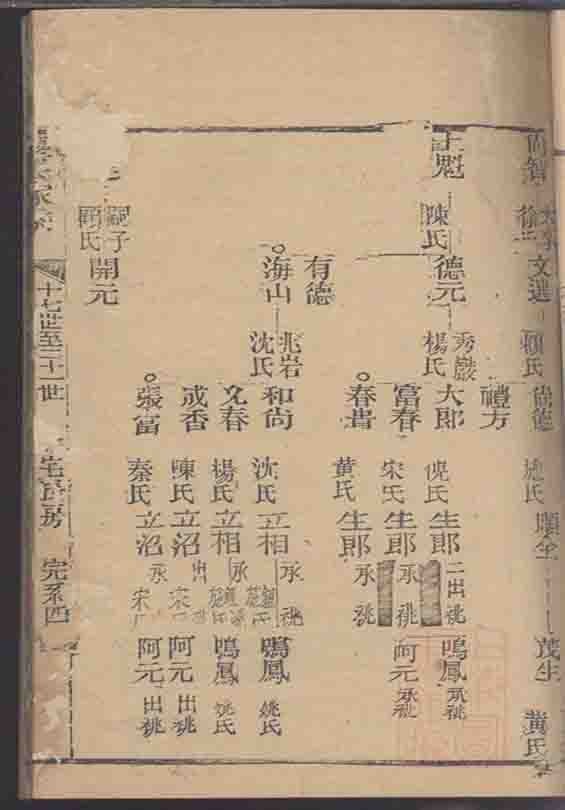 尚智 徐氏 文進 顧氏 尚德 施氏 順全 茂生 黄氏
禮方
士魁 陳氏 德元 秀巖 楊氏 大郎 倪氏 生郎 二出祧 鳴鳳 承祧
富春 宋氏 生郎 承祧 阿元 承祧
有德 春貴 黄氏 生郎 承祧
海山 兆岩 沈氏 和尚 沈氏 立相 承祧 鳴鳳 姚氏
楊氏 立相 承 鳴鳳 姚氏
戒香 陳氏 立沼 出 阿元 出祧
張富 秦氏 立沼 承 宋 阿元 出祧
嗣子 顧氏 開元
十七世至二十世 宅長房 完系四